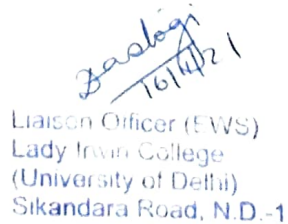 Rastogi
16/4/21
Liaison Officer (EWS)
Lady Irwin College
(University of Delhi)
Sikandara Road, N.D.-1